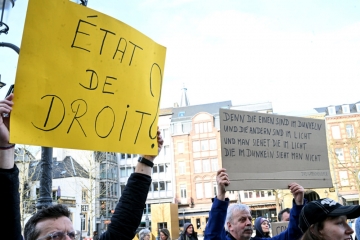 ÉTAT
DE
DROIT?
DENN DIE EINEN SIND IM DUNKELN
UND DIE ANDERN SIND IM LICHT
UND MAN SIEHET DIE IM LICHT
DIE IM DUNKELN SIEHT MAN NICHT